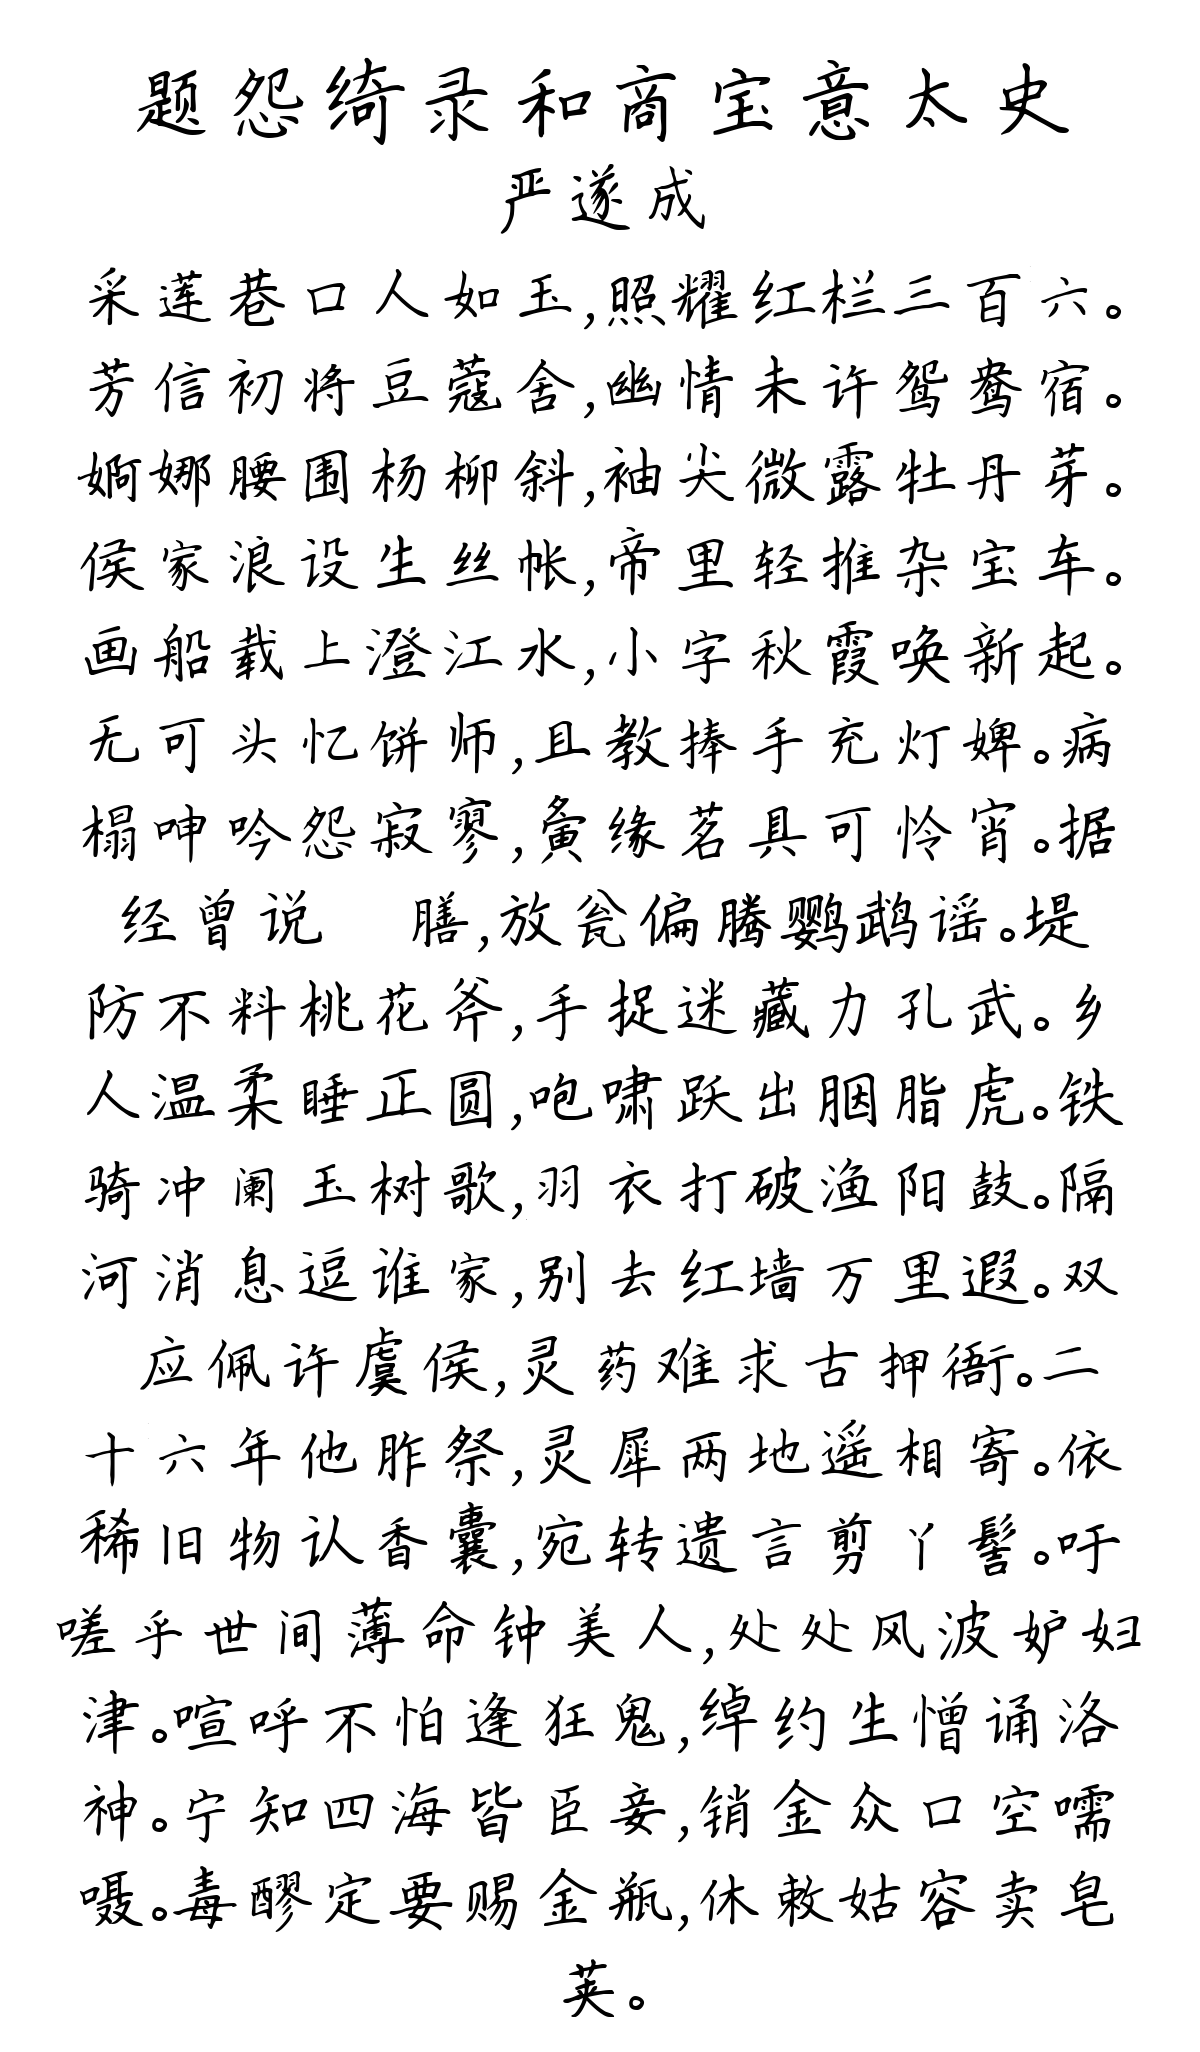 题怨绮录和商宝意太史
严遂成
采莲巷口人如玉,照耀红栏三百六。
芳信初将豆蔻舍,幽情未许鸳鸯宿。
婀娜腰围杨柳斜,袖尖微露牡丹芽。
侯家浪设生丝帐,帝里轻推杂宝车。
画船载上澄江水,小字秋霞唤新起。
无可头忆饼师,且教捧手充灯婢。病
榻呻吟怨寂寥,夤缘茗具可怜宵。据
经曾说 膳,放瓮偏腾鹦鹉谣。堤
防不料桃花斧,手捉迷藏力孔武。乡
人温柔睡正圆,咆啸跃出胭脂虎。铁
骑冲阑玉树歌,羽衣打破渔阳鼓。隔
河消息逗谁家,别去红墙万里遐。双
应佩许虞侯,灵药难求古押衙。二
十六年他昨祭,灵犀两地遥相寄。依
稀旧物认香囊,宛转遗言剪丫髻。吁
嗟乎世间薄命钟美人,处处风波妒妇
津。喧呼不怕逢狂鬼,绰约生憎诵洛
神。宁知四海皆臣妾,销金众口空嚅
嗫。毒醪定要赐金瓶,休敕姑容卖皂
荚。